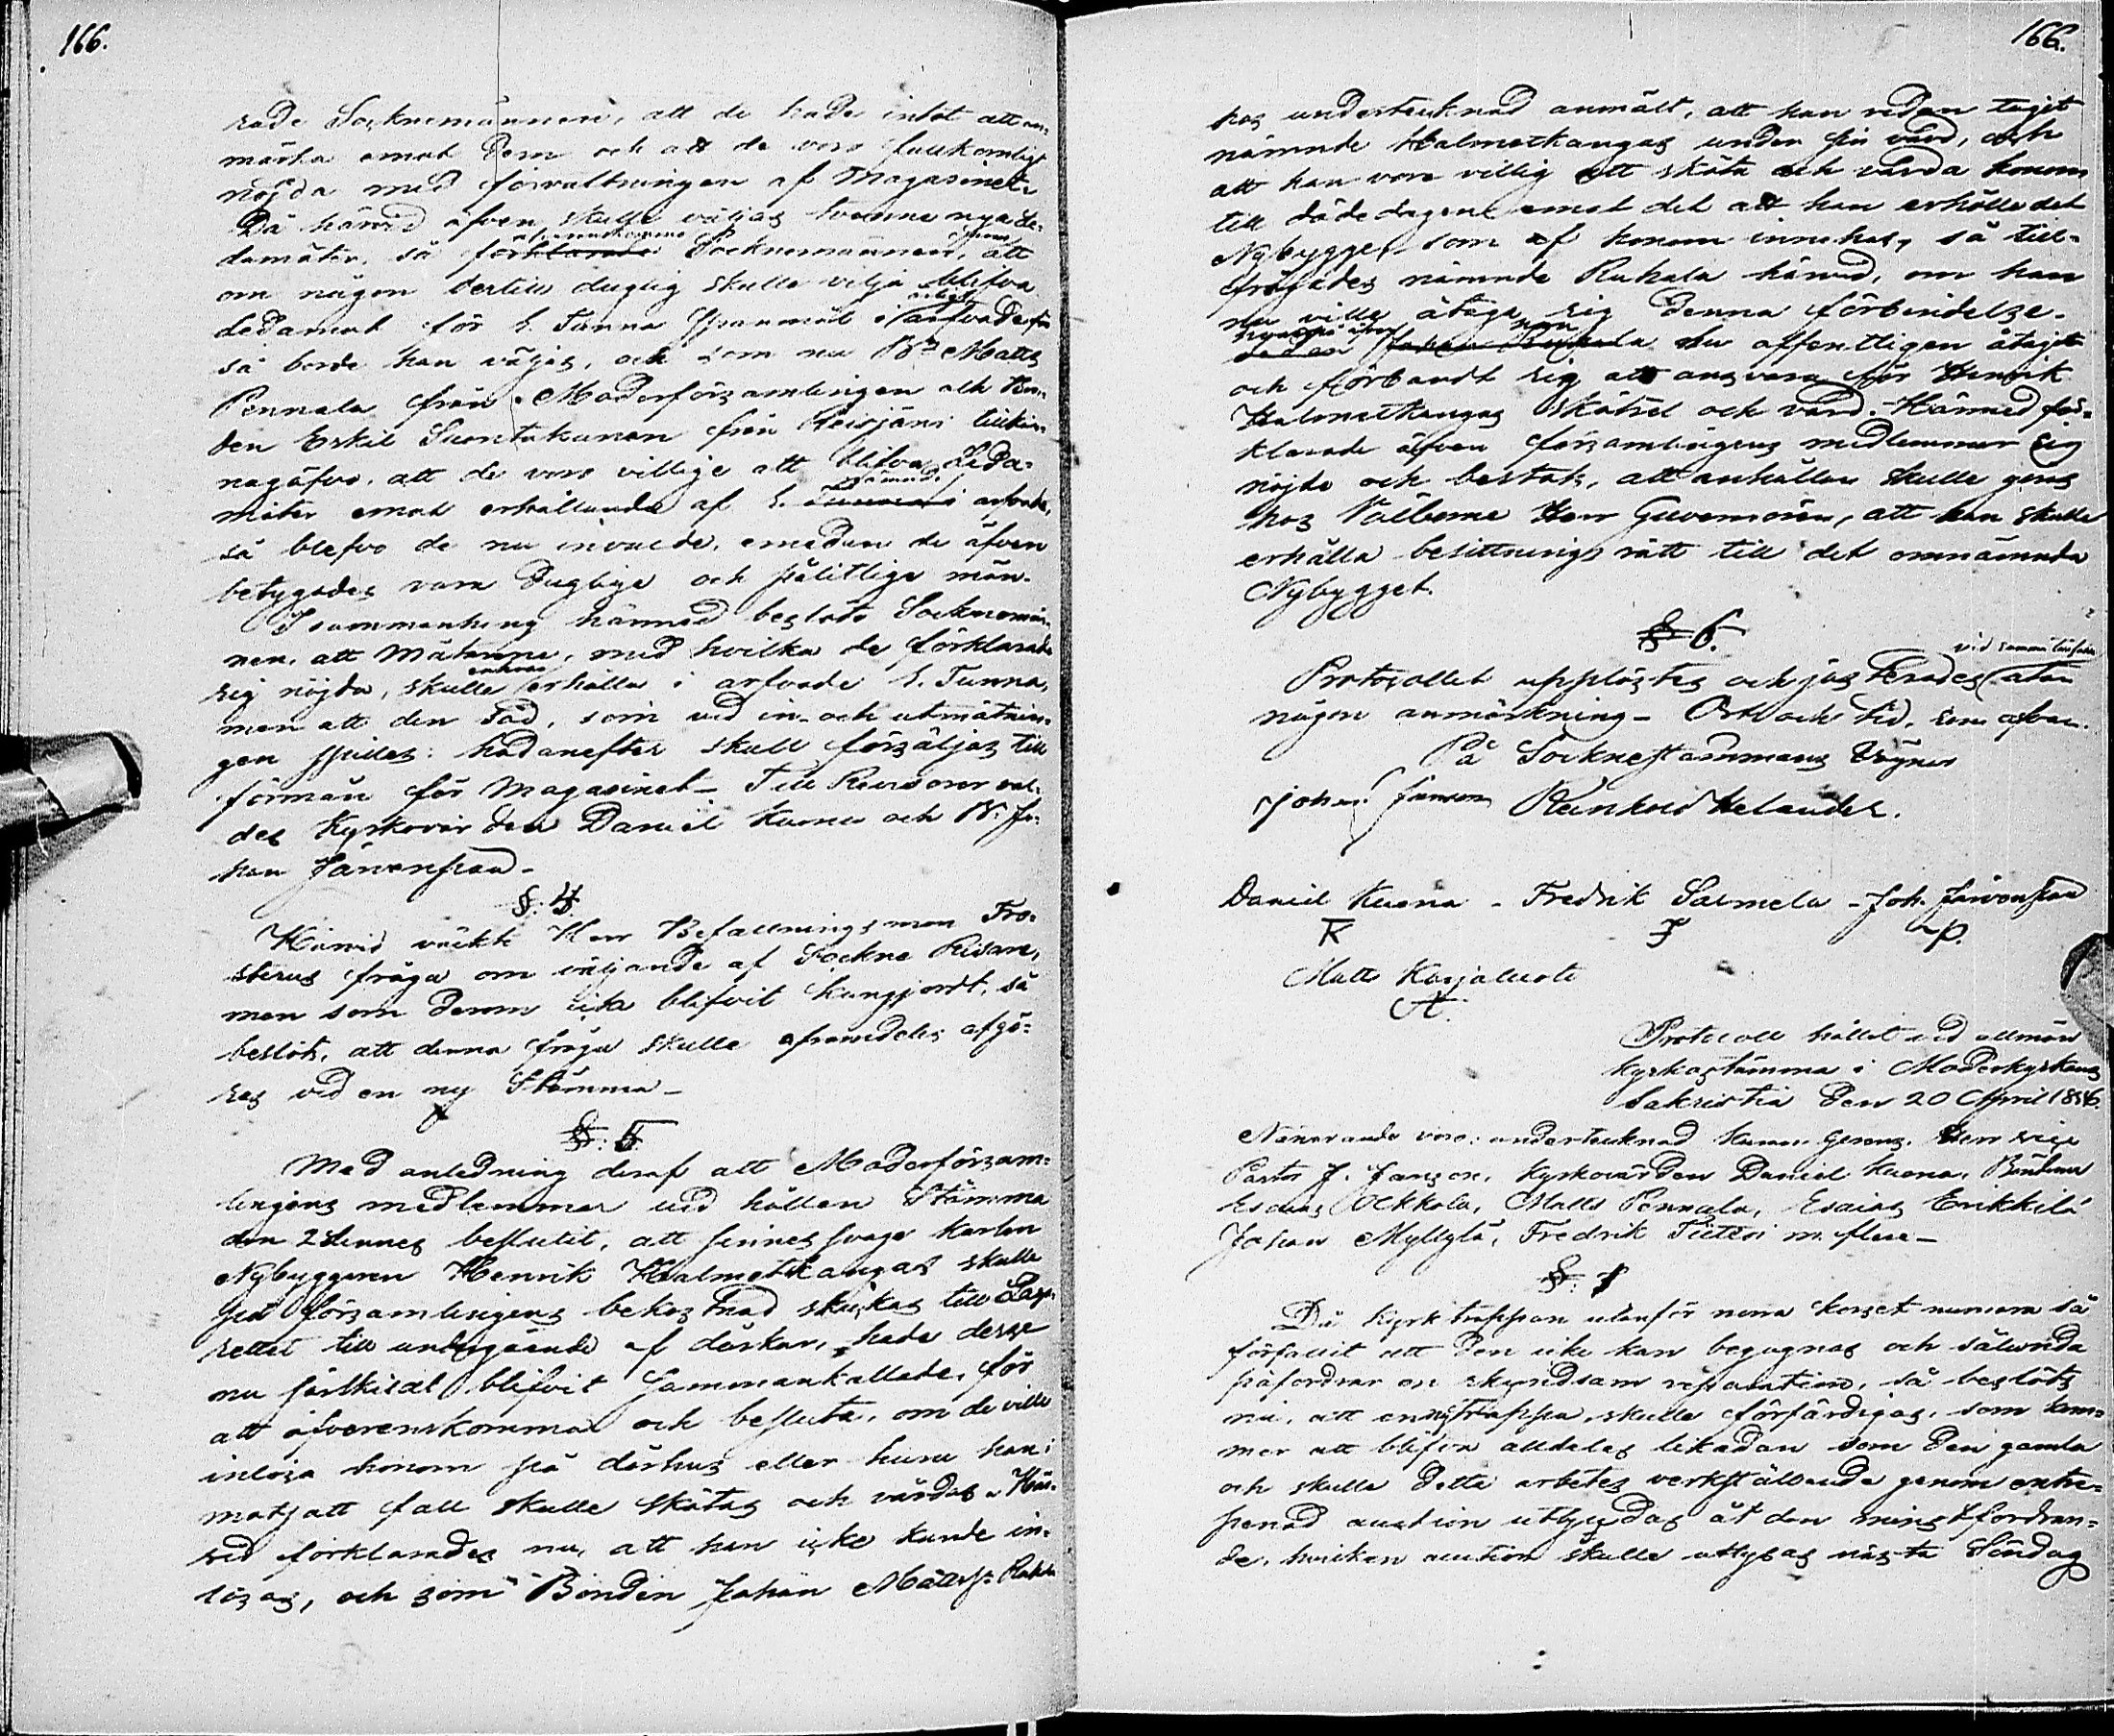 166.
rade Socknemännen, att de hade intet att an-
märka emot dem och att de voro fullkomligt
nöjda med förvaltningen af Magasinet.
Då härvid äfven skulle väljas tvenne nya Le-
damöter, så förklarade Socknemännen, att
om någon dertill duglig skulle vilja blifva
ledamot för 1. Tunna Spanmål i arfvode
så borde han väljas, och som nu Bn Matts
Pennala från Moderförsamlingen och Bon-
den Eskil Suontakanen från Reisjärvi tillkän-
nagåfvo, att de voro villige att blifva Leda-
möter emot erhållande af 1. Tunna i arfvode,
så blefvo de nu invalde, emedan de äfven
betygades vara duglige och pålitlige män.
I sammanhang härmed beslöto Socknemän-
nen, att Mätarene, med hvilka de förklarade
sig nöjda, skulle erhålla i arfvode 1. Tunna,
men att den säd, som vid in- och utmätnin-
gen spilles, hädanefter skall försäljas till
förmån för Magasinet - Till Revisorer val-
des Kyrkovärden Daniel Kuona och Bn Jo-
han Järvenpää -
§. 4.
Härvid väckte Herr Befallningsman Fro-
sterus fråga om väljande af Sockne
men som derom icke blifvit kungjordt, så
beslöts, att denna fråga skulle framdeles afgö-
ras vid en ny Stämma -
§. 5.
Med anledning deraf att Moderförsam-
lingens medlemmar vid hållen Stämma
den 2 beslutit, att sinnessvage karlen
Nybyggaren Henrik Halmetkangas skulle
på församlingens bekostnad skickas till Laza-
rettet till undergående af dårkur, hade desse
nu särskildt blifvit sammankallade, för
att öfverenskomma och besluta, om de ville
inlösa honom på dårhus eller huru han i
motsatt fall skulle skötas och vårdas. Här-
vid förklarades nu, att han icke kunde in-
lösas, och som Bonden Johan Mattss: Ruhala
166.
hos undertecknad anmält, att han redan tagit
nämnde Halmetkangas under sin vård, och
att han vore villig att sköta och vårda honom
till dödedagen emot det att han erhölle det
Nybygge, som af honom innehas, så till-
frågades nämnde Ruhala härvid, om han
nu ville åtaga sig denna förbindelse.
han nu offentligen åtagit
och förbandt sig att ansvara för Henrik
Halmetkangas skötsel och vård. - Härmed för-
klarade äfven församlingens medlemmar sig
nöjde och beslöts, att anhållan skulle göras
hos Välborne Herr Guvernören, att han skulle
erhålla besittningsrätt till det omnämnda
Nybygget.
§ 6.
vid samma tillfälle
Protocollet upplästes och justerades utan
någon anmärkning - Ort och tid, som ofvan.
På Socknestämmans vägnar
Johan Janson Reinhold Helander.
Daniel Kuona - Fredrik Salmela - Joh. Järvenpää
K F P.
Matts Karjaluoto
Protocoll hållet vid allmän
kyrkostämma i Moderkyrkans
Sakristia den 20 April 1856.
Närvarande voro: undertecknad Herr vice
Pastor J. Janson, kyrkovärden Daniel Kuona, Bönderne
Esaias Okkola, Matts Pennala, Esaias Erikkilä
Johan Myllylä, Fredrik Tiitto m. flere -
§. 1
Då kyrktrappan utanför norra korset numera så
förfallit att den icke kan begagnas och sålunda
påfordrar en skyndsam reparation, så beslöts
nu, att en ny trappa skulle förfärdigas, som kom-
mer att blifva alldeles likadan som den gamla
och skulle detta arbetes verkställande genom entre-
penad auction utbjudas åt den minstfordran-
de, hvilken auction skulle utlysas nästa Söndag